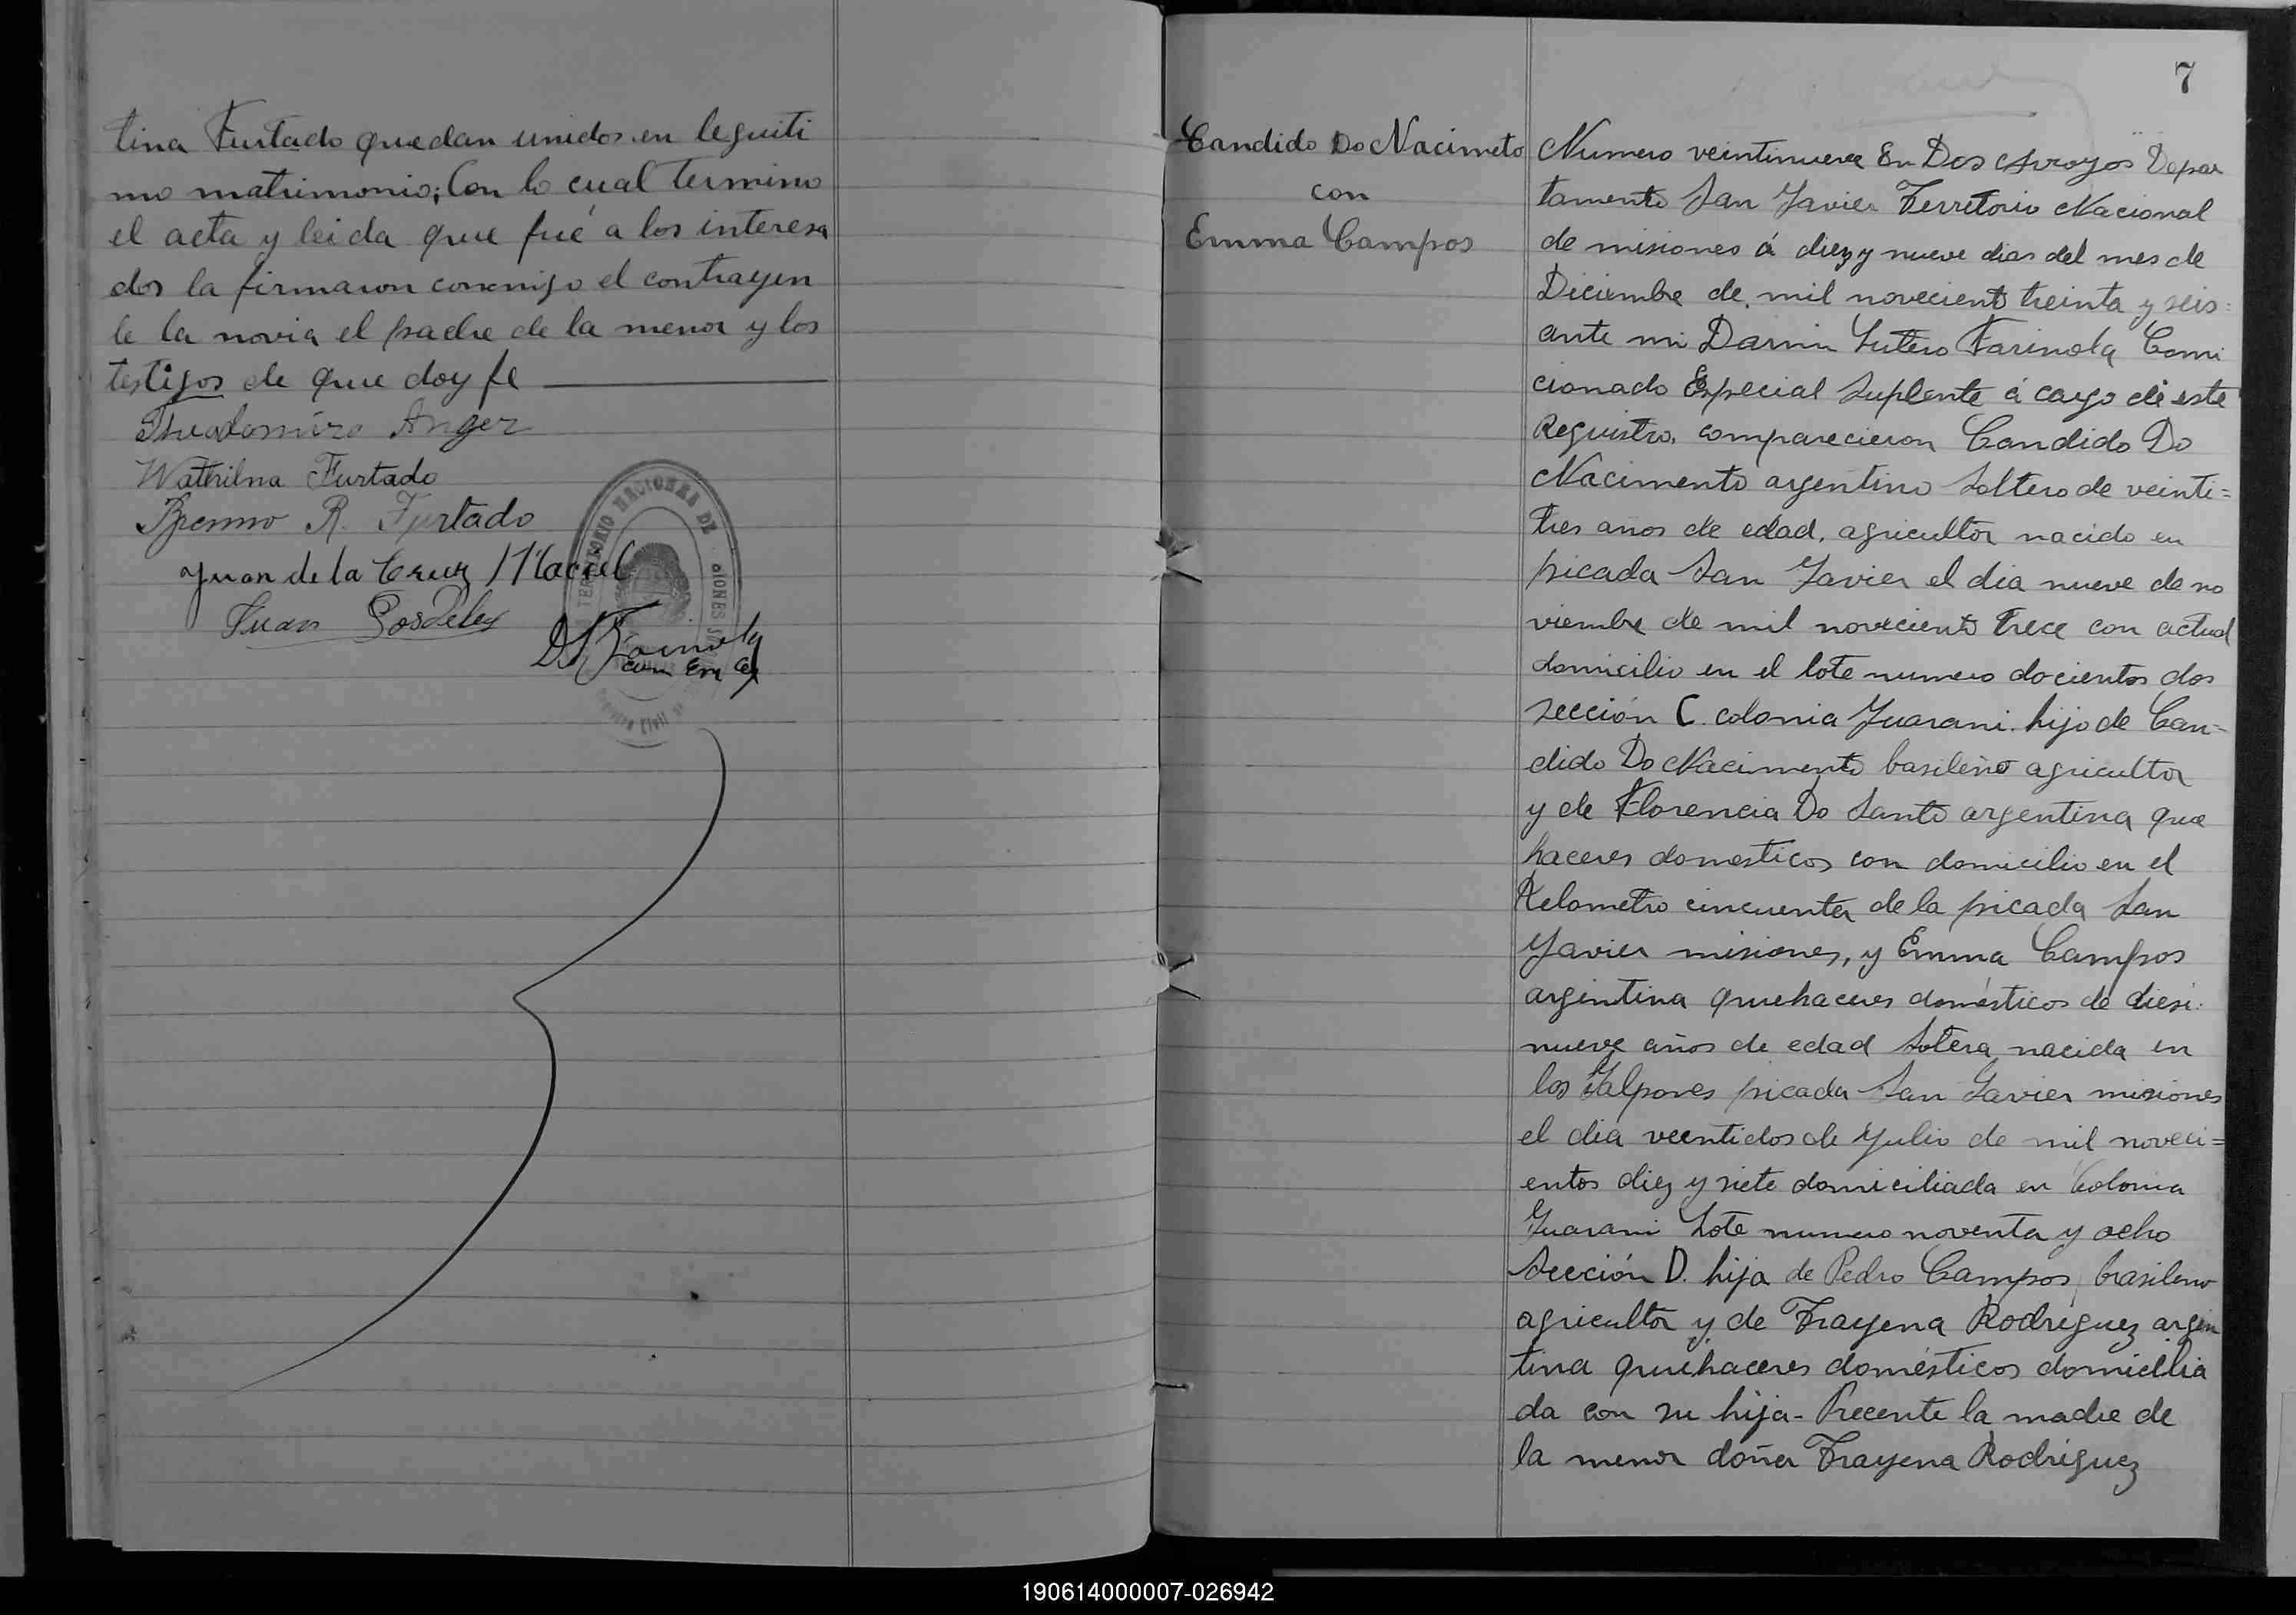 tina Furtado quedan unidos en leguiti
mo matrimonio; Con lo cual termino
el acta y leida que fué a los interesa
dos la firmaron conmigo el contrayen
te la novia el padre de la menor y los
testigos de que doy fe
Anger
Wathilna Furtado
R. Furtado
Juan de la Cruz Maciel
Juan
TERRITORIO NACIONAL DE MISIONES
Registro Civil
7
Candido Do Nacimeto
con
Emma Campos
Numero veintinueve En Dos Arroyos Depar
tamento San Javier Territorio Nacional
de misiones á diez y nueve dias del mes de
Diciembre de mil novecient treinta y seis=
ante mi Darmin Lutero Farinola Comi
cionado Especial Suplente á cargo de este
Reguistro, comparecieron Candido Do
Nacimento argentino Soltero de veinti=
tres años de edad, agricultor nacido en
picada San Javier el dia nueve de no
viembre de mil novecients trece con actual
domicilio en el lote numero docientos dos
sección C colonia Guarani hijo de Can-
dido Do Nacimento basileño agricultor
y de Florencia Do Santo argentina que
haceres domesticos con domicilio en el
Kelometro cincuenta de la picada San
Javier misiones, y Emma Campos
argentina quehaceres domésticos de diesi=
nueve años de edad Sotera, nacida en
los Galpones picada San Javier misiones
el dia veentidos de Julio de mil noveci=
entos diez y siete domiciliada en Colonia
Guarani Lote numero noventa y ocho
Sección D. hija de Pedro Campos, brasileno
agricultor y de Trayena Rodriguez argen
tina quehaceres domésticos domicilia
da con su hija- Precente la madre de
la menor doña Trayena Rodriguez
190614000007-026942